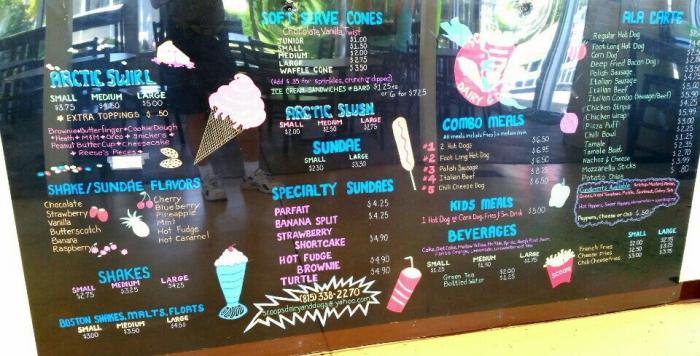 SOFT SERVE CONES
Chocolate, Vanilla, Twist
JUNIOR $1.00
SMALL $1.50
MEDIUM $2.00
LARGE $2.75
WAFFLE CONE $3.50
(Add $.35 for sprinkles, crunch, dipped)
ICE CREAM SANDWICHES & BARS $1.25 ea
or 6 for $7.25
ARCTIC SWIRL
SMALL MEDIUM LARGE
$3.75 $4.50 $5.00
* EXTRA TOPPINGS $.50
Brownie Butterfinger Cookie Dough
Heath M&M Oreo Snickers
Peanut Butter Cup Cheesecake
Reese's Pieces
SHAKE/SUNDAE FLAVORS
Chocolate
Strawberry
Vanilla
Butterscotch
Banana
Raspberry
Cherry
Blueberry
Pineapple
Mint
Hot Fudge
Hot Caramel
SHAKES
SMALL MEDIUM LARGE
$2.75 $3.25 $4.25
BOSTON SHAKES, MALTS, FLOATS
SMALL MEDIUM LARGE
$3.00 $3.50 $4.50
ARCTIC SLUSH
SMALL MEDIUM LARGE
$2.00 $2.50 $2.75
SUNDAE
SMALL LARGE
$2.30 $3.30
SPECIALTY SUNDAES
PARFAIT $4.25
BANANA SPLIT $4.25
STRAWBERRY
SHORTCAKE $4.90
HOT FUDGE
BROWNIE $4.90
TURTLE $4.90
(815) 338-2270
scoopsdairyanddogs@yahoo.com
DAIRY &
COMBO MEALS
All meals include Fries & medium drink
#1 2 Hot Dogs $6.50
#2 Foot Long Hot Dog $6.50
#3 Polish Sausage
#4 Italian Beef
#5 Chili Cheese Dog
KIDS MEALS
1 Hot Dog or Corn Dog, Fries & Sm Drink $5.00
BEVERAGES
SMALL MEDIUM LARGE
$1.25 $1.50 $1.75
Green Tea $2.00
Bottled Water $1.25
SCOOPS
ALA CARTE
Regular Hot Dog
Foot Long Hot Dog
Corn Dog
Deep Fried Bacon Dog
Polish Sausage
Italian Sausage
Italian Beef
Italian Combo (Sausage/Beef)
Chicken Strips
Chicken Wrap
Pizza Puff
Chili Bowl
Tamale
Tamale Boat
Nachos & Cheese
Mozzarella Sticks
Potato Chips
Condiments Available
Peppers, cheese or chili $.50
SMALL LARGE
French Fries $2.00 $2.75
Cheese Fries $2.50
Chili Cheese Fries $3.00